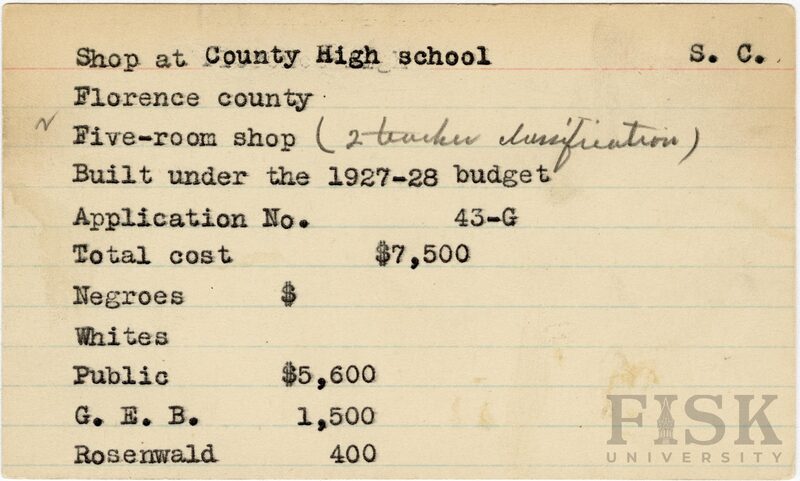 Shop at County High school S. C.
Florence county
Five-room shop (2 teacher classification)
Built under the 1927-28 budget
Application No. 43-G
Total cost $7,500
Negroes $
Whites
Public $5,600
G. E. B. 1,500
Rosenwald 400
FISK
UNIVERSITY